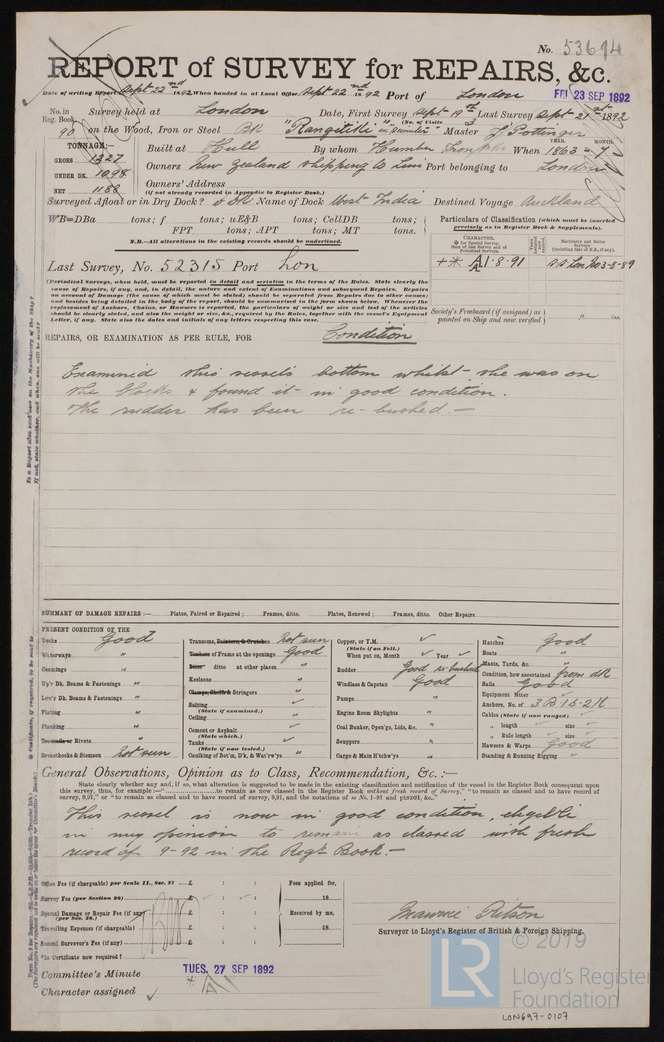 No. 53694
REPORT of SURVEY for REPAIRS, &c.
Date of writing Report Sept 22nd 1892 When handed in at Local Office Sept 22nd 1892 Port of London FRI 23 SEP 1892
No. in Reg. Book. Survey held at London Date, First Survey Sept 19th Last Survey Sept 21st 1892
(No. of Visits 3
90 on the Wood, Iron or Steel Bk "Rangitiki" Master J. Pottinger
TONNAGE:— Built at Hull By whom Humber Iron When 1863 - 7
YEAR. MONTH.
GROSS 1227
UNDER DK. 1098
NET 1188
Owners New Zealand Shipping Co Lim Port belonging to London
Owners' Address
(if not already recorded in Appendix to Register Book.)
Surveyed Afloat or in Dry Dock? DK Name of Dock West India Destined Voyage Auckland
WB=DBa tons; f tons; uE&B tons; CellDB tons;
FPT tons; APT tons; MT tons.
N.B.—All alterations in the existing records should be underlined.
Particulars of Classification (which must be inserted precisely as in Register Book & Supplements).
CHARACTER.
Last Survey, No. 52315 Port Lon
A 1-8-91
(Periodical Surveys, when held, must be reported in detail and seriatim in the terms of the Rules. State clearly the
cause of Repairs, if any, and, in detail, the nature and extent of Examinations and subsequent Repairs. Repairs
on account of Damage (the cause of which must be stated) should be separated from Repairs due to other causes;
and besides being detailed in the body of the report, should be summarised in the form shown below. Whenever the
replacement of Anchors, Chains, or Hawsers is reported, the particulars of weight or size and test of the articles
should be clearly stated, and also the weight or size, &c., required by the Rules, together with the vessel's Equipment
Letter, if any. State also the dates and initials of any letters respecting this case.
Society's Freeboard (if assigned) as painted on Ship and now verified
REPAIRS, OR EXAMINATION AS PER RULE, FOR Condition
Examined this vessel's bottom whilst she was on
the blocks & found it in good condition.
The rudder has been re-bushed.—
SUMMARY OF DAMAGE REPAIRS:— Plates, Faired or Repaired; Frames, ditto. Plates, Renewed; Frames, ditto. Other Repairs
PRESENT CONDITION OF THE
Decks Good
Waterways "
Coamings "
Up'r Dk. Beams & Fastenings "
Low'r Dk. Beams & Fastenings "
Plating "
Planking "
Treenails or Rivets "
Breasthooks & Stemson Not seen
Transoms, Pointers, & Crutches Not seen
Timbers of Frame at the openings Good
Ditto ditto at other places "
Keelsons "
Clamps, Shelfs & Stringers "
Salting ✓
(State if examined.)
Ceiling "
Cement or Asphalt ✓
(State which.)
Tanks ✓
(State if now tested.)
Caulking of Bot'm, D'k, & Wat'rw'ys "
Copper, or Y.M. ✓
(State if on Felt.)
When put on, Month ✓ Year ✓
Rudder Good re-bushed
Windlass & Capstan Good
Pumps "
Engine Room Skylights ✓
Coal Bunker, Open'gs, Lids, &c. "
Scuppers "
Cargo & Main H'tchw'ys "
Hatches Good
Boats "
Masts, Yards, &c. "
Condition, how ascertained from dk
Sails Good
Equipment Letter
Anchors, No. of 3B 1S 2K
Cables (State if now ranged) ✓
" length ✓ size ✓
" Rule length ✓ size
Hawsers & Warps Good
Standing & Running Rigging "
General Observations, Opinion as to Class, Recommendation, &c.:—
State clearly whether any, and if so, what alteration is suggested to be made in the existing classification and notification of the vessel in the Register Book consequent upon
this survey, thus, for example:—"..........to remain as now classed in the Register Book without fresh record of Survey," "to remain as classed and to have record of
survey, 9,91," or "to remain as classed and to have record of survey, 9,91, and the notations of
This vessel is now in good condition, eligible
in my opinion to remain as classed with fresh
record of 9-92 in the Reg'r Book.—
Office Fee (if chargeable) per Scale II., Sec. 27 £ : :
Survey Fee (per Section 28) £ : :
Special Damage or Repair Fee (if any) (per Sec. 28.) £ : :
Travelling Expenses (if chargeable) £ : :
Second Surveyor's Fee (if any) £ : :
Fees applied for, 18
Received by me, 18
Maurice Pitson
Surveyor to Lloyd's Register of British & Foreign Shipping.
*Is Certificate now required?
Committee's Minute TUES. 27 SEP 1892
Character assigned
© 2019
LR
Lloyd's Register
Foundation
LON697-0107